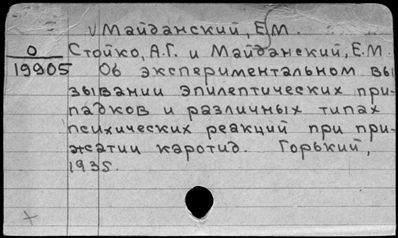 √ Майданский, Е.М.
О
19905
Стойко, А.Г. и Майданский, Е.М.
Об экспериментальном вы
зывании эпилептических при-
падков и различных типах
психических реакций при при-
жатии каротид. Горький,
1935.
+